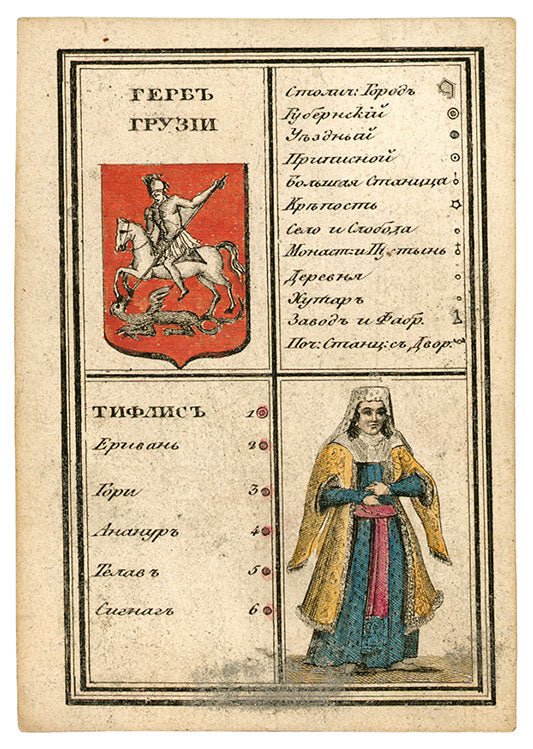 ГЕРБЪ
ГРУЗІИ
Столич: Городъ
Губернскій
Уѣздный
Приписной
Большая Станица
Крѣпость
Село и Слобода
Монаст: и Пустынь
Деревня
Хутаръ
Заводъ и Фабр.
Поч: Станц: съ Двор.
ТИФЛИСЪ 1
Еривань 2
Гори 3
Анануръ 4
Телавъ 5
Сигнагъ 6